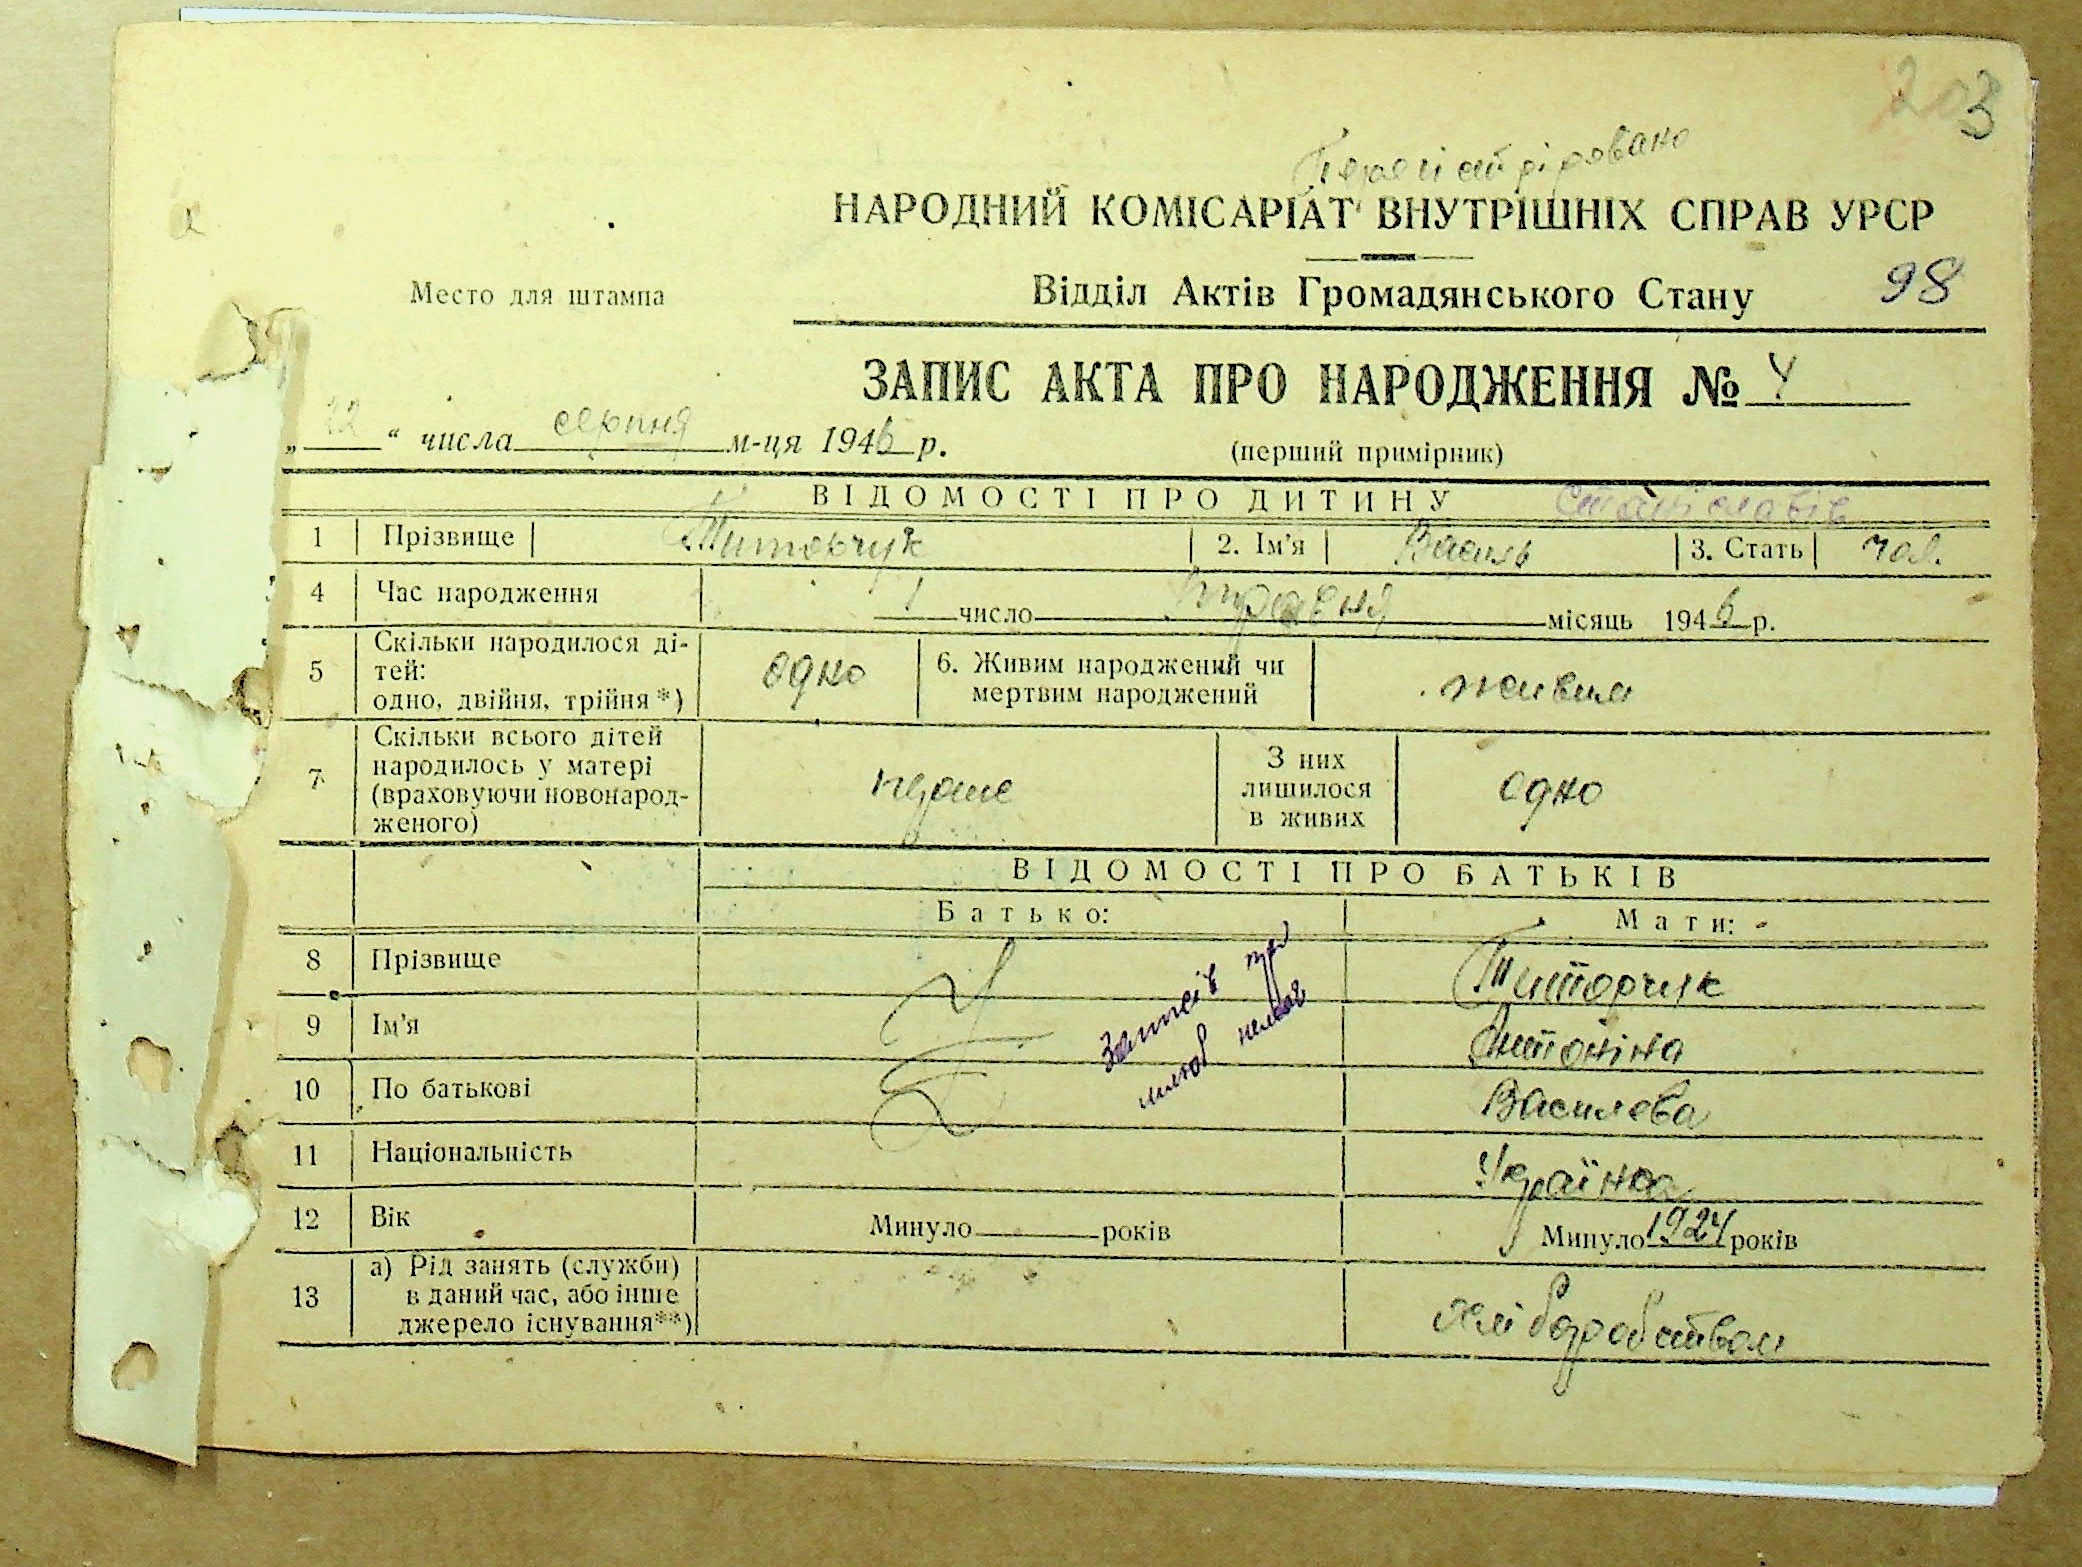 203
НАРОДНИЙ КОМІСАРІАТ ВНУТРІШНІХ СПРАВ УРСР
Место для штампа
Відділ Актів Громадянського Стану 98
ЗАПИС АКТА ПРО НАРОДЖЕННЯ № 4
„22“ числа серпня м-ця 1946 р.
(перший примірник)
ВІДОМОСТІ ПРО ДИТИНУ Станіславів
1 Прізвище Титорчук 2. Ім'я Василь 3. Стать чол.
4 Час народження 1 число травня місяць 1946 р.
5 Скільки народилося ді-
тей:
одно, двійня, трійня*) одно 6. Живим народжений чи
мертвим народжений живим
7 Скільки всього дітей
народилось у матері
(враховуючи новонарод-
женого) перше З них
лишилося
в живих одно
ВІДОМОСТІ ПРО БАТЬКІВ
Батько: Мати:
8 Прізвище Титорчук
9 Ім'я Антоніна
10 По батькові Василева
Записів про
шлюб немає
11 Національність Українка
12 Вік Минуло років Минуло 1924 років
13 а) Рід занять (служби)
в даний час, або інше
джерело існування**) хліборобством